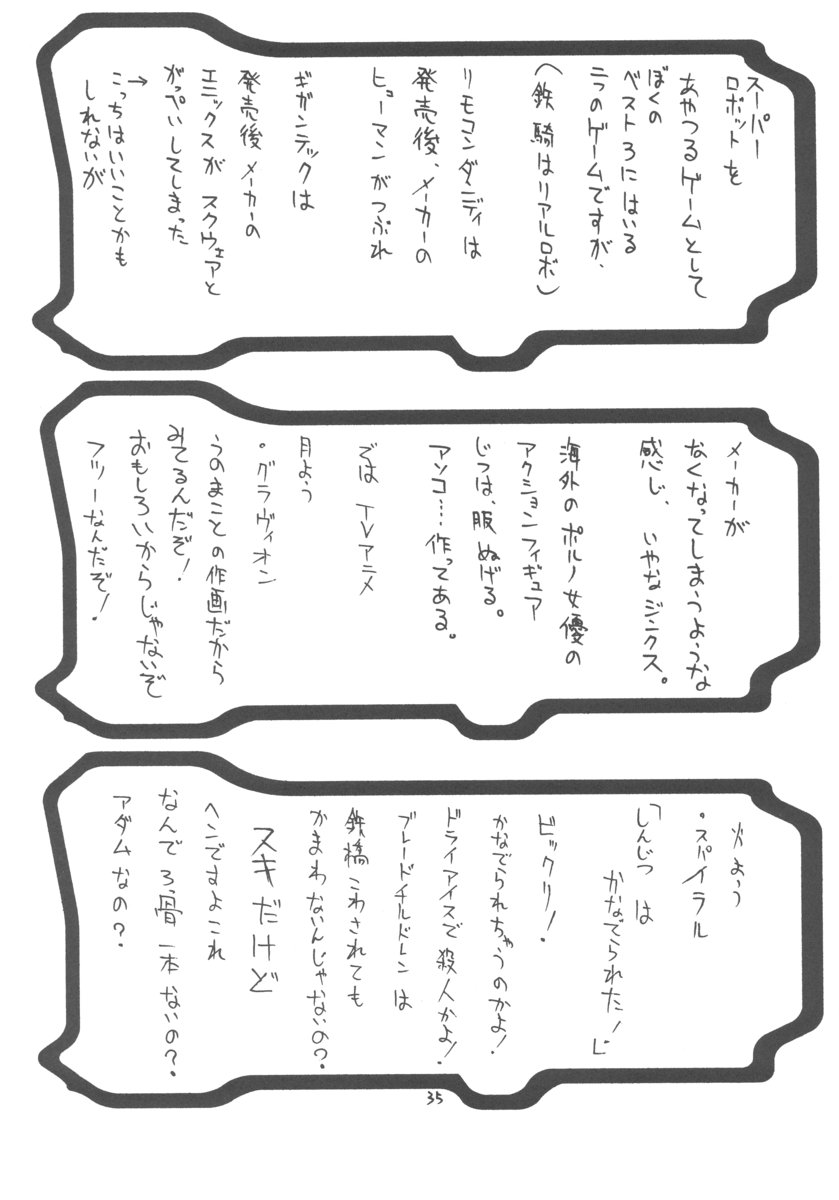 スーパー
ロボットを
あやつるゲームとして
ぼくの
ベスト3にはいる
二つのゲームですが、
(鉄騎はリアルロボ)
リモコンダンディは
発売後、メーカーの
ヒューマンがつぶれ
ギガンテックは
発売後メーカーの
エニックスが スクウェアと
がっぺいしてしまった
→こっちはいいことかも
しれないが
メーカーが
なくなってしまうような
感じ、 いやなジンクス。
海外のポルノ女優の
アクションフィギュア
じつは、服ぬげる。
アソコ…‥作ってある。
では TVアニメ
月よう
・グラヴィオン
うのまことの作画だから
みてるんだぞ!
おもしろいからじゃないぞ
フツーなんだぞ!
火よう
・スパイラル
「しんじつ は
かなでられた!」
ビックリ!
かなでられちゃうのかよ!
ドライアイスで殺人かよ!
ブレードチルドレン は
鉄橋こわされても
かまわないんじゃないの?
スキだけど
ヘンですよこれ
なんでろっ骨一本ないの?
アダムなの?
35